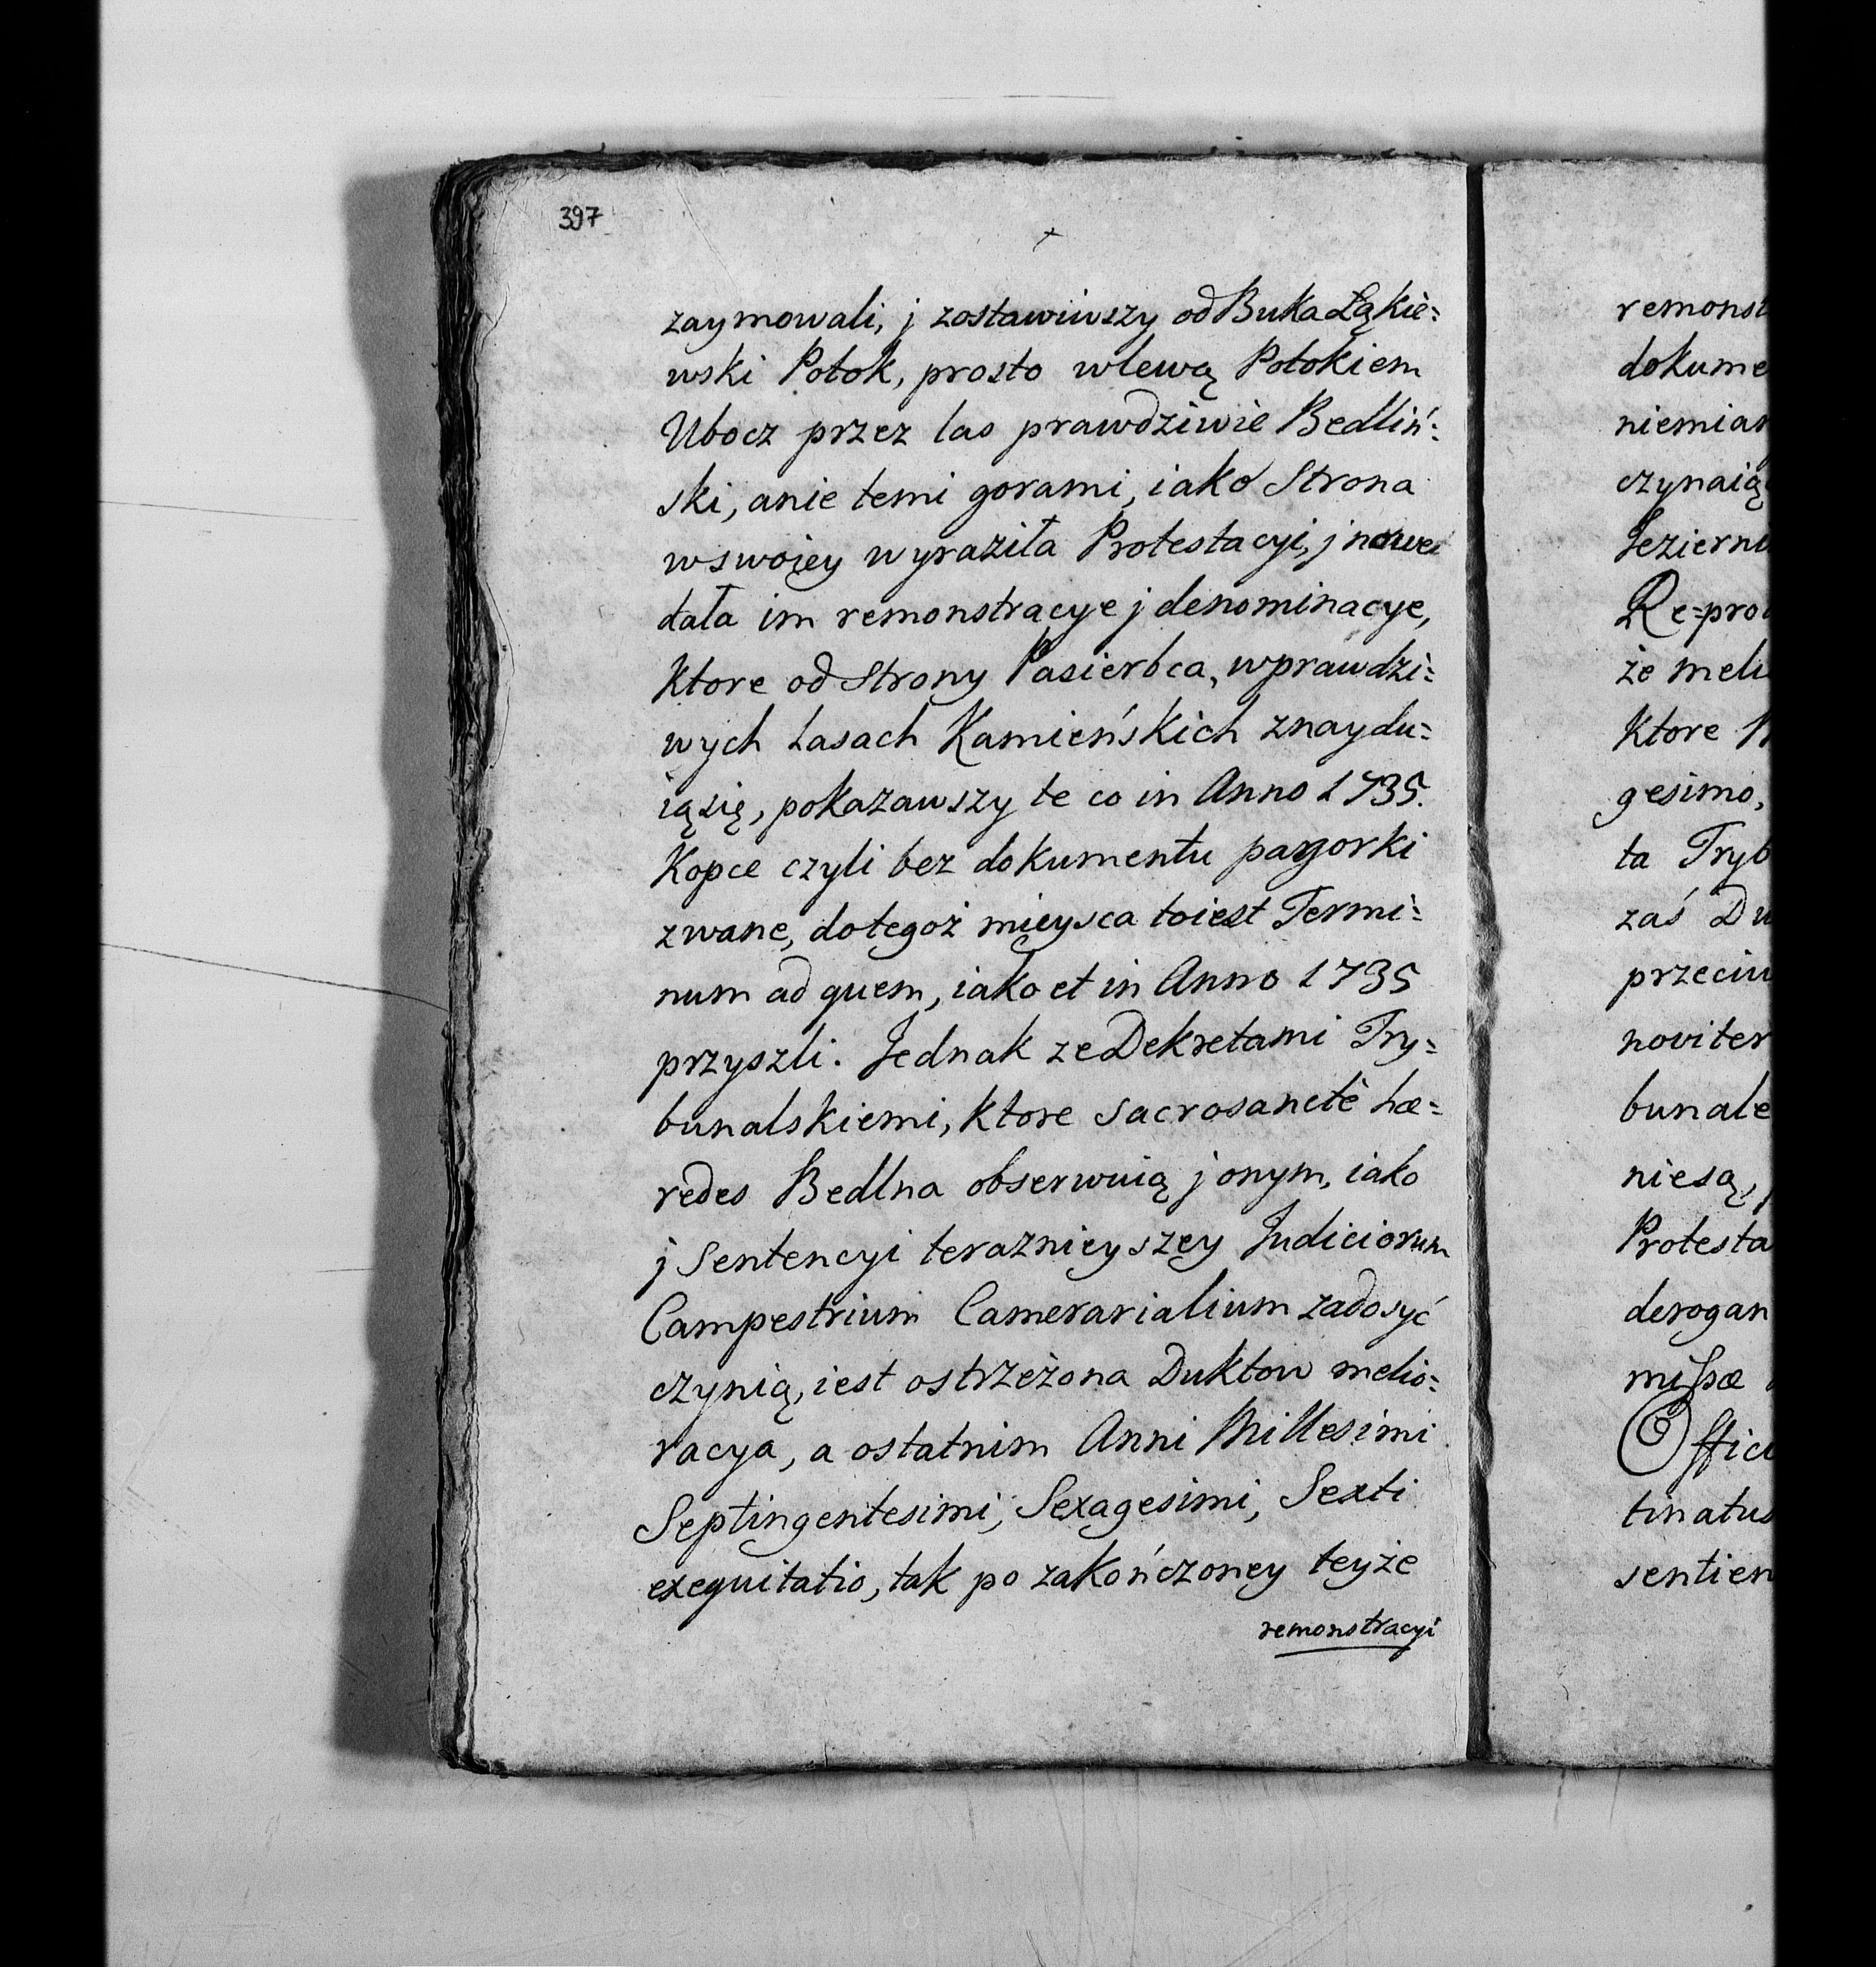 397
zaymowali, j zostawiwszy od Buka Łąkie:
wski Potok, prosto wlewą Potokiem
Ubocz przez las prawdziwie Bedliń:
ski, anie temi gorami, iako Strona
wswoiey wyraziła Protestacyi, j nowe
dała im remonstracye j denominacye,
Ktore od Strony Pasierbca, wprawdzi:
wych Lasach Kamieńskich znaydu:
iąsię, pokazawszy te co in Anno 1735.
Kopce czyli bez dokumentu pagorki
zwane, dotegoż mieysca toiest Termi:
num ad quem, iako et in Anno 1735
przyszli. Jednak ze Dekretami Try:
bunalskiemi, Ktore sacrosancte hæ:
redes Bedlna obserwuią j onym, iako
j Sentencyi teraznieyszey Judiciorum
Campestrium Camerarialium zadosyć
czynią, iest ostrzeżona Duktow melio:
racya, a ostatnim Anni Millesimi
Septingentesimi, Sexagesimi, Sexti
exequitatio, tak po zakończoney teyże
remonstracyi
remonst
dokume
niemian
czynaią
Jezierni
Re=pro
że meli
Ktore
gesimo,
ta Tryb
zaś Du
przeciw
noviter
bunale
niesą,
Protesta
derogan
missæ
Offici
tinatus
sentien